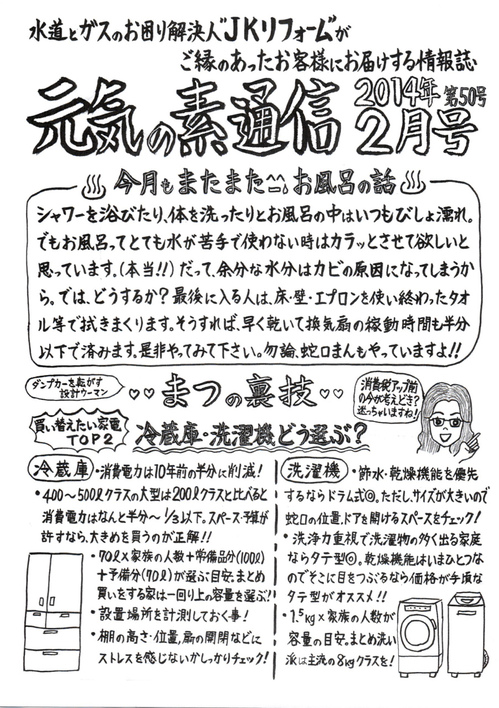 水道とガスのお困り解決人"JKリフォーム"が
ご縁のあったお客様にお届けする情報誌
元気の素通信 2014年 第50号
2月号
今月もまたまた^^;お風呂の話
シャワーを浴びたり、体を洗ったりとお風呂の中はいつもびしょ濡れ。
でもお風呂ってとても水が苦手で使わない時はカラッとさせて欲しいと
思っています。(本当!!)だって、余分な水分はカビの原因になってしまうか
ら。では、どうするか?最後に入る人は、床・壁・エプロンを使い終わったタオ
ル等で拭きまくります。そうすれば、早く乾いて換気扇の稼動時間も半分
以下で済みます。是非やってみて下さい。勿論、蛇口まんもやっていますよ!!
ダンプカーを転がす
設計ウーマン
♡♡まつの裏技♡♡
消費税アップ前
の今が考えどき?
迷っちゃいますね!
買い替えたい家電
TOP2
冷蔵庫・洗濯機どう選ぶ?
冷蔵庫
・消費電力は10年前の半分に削減!
・400〜500ℓクラスの大型は200ℓクラスと比べると
消費電力はなんと半分〜1/3以下。スペース・予算が
許すなら、大きめを買うのが正解!!
・70ℓ×家族の人数+常備品分(100ℓ)
+予備分(70ℓ)が選ぶ目安。まとめ
買いをする家は一回り上の容量を選ぶ!
・設置場所を計測しておく事!
・棚の高さ・位置、扉の開閉などに
ストレスを感じないかしっかりチェック!
洗濯機
・節水・乾燥機能を優先
するならドラム式◎。ただし、サイズが大きいので
蛇口の位置、ドアを開けるスペースをチェック!
・洗浄力重視で洗濯物の多く出る家庭
ならタテ型◎。乾燥機能はいまひとつな
のでそこに目をつぶるなら価格が手頃な
タテ型がオススメ!!
・1.5kg×家族の人数が
容量の目安。まとめ洗い
派は主流の8kgクラスを!